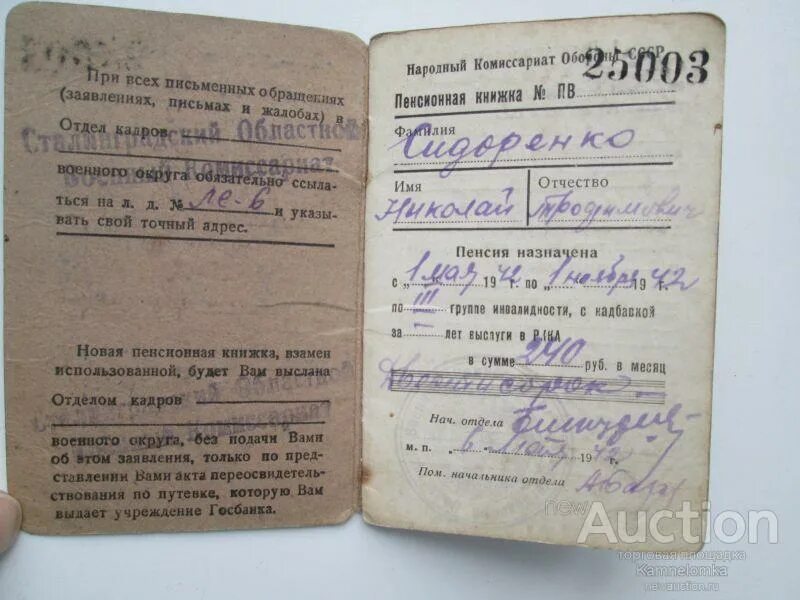 При всех письменных обращениях
(заявлениях, письмах и жалобах) в
Отдел кадров
Сталинградский Областной
военного округа обязательно ссылать-
Военный Комиссариат
ся на л. д. № Ле-6 и указы-
вать свой точный адрес.
Новая пенсионная книжка, взамен
использованной, будет Вам выслана
Отделом кадров
военного округа, без подачи Вами
об этом заявления, только по пред-
ставлении Вами акта переосвидетель-
ствования по путевке, которую Вам
выдает учреждение Госбанка.
Народный Комиссариат Обороны СССР
Пенсионная книжка № ПВ 25003
Фамилия
Сидоренко
Имя Отчество
Николай Трофимович
Пенсия назначена
с „1“ мая 1942 г. по „1“ ноября 1942 г.
по III группе инвалидности, с надбавкой
за — лет выслуги в РККА
в сумме 240 руб. в месяц
Двести сорок
Нач. отдела
м. п. „6“ мая 1942 г.
Пом. начальника отдела
newAuction
торговая площадка
Kamnelomka
newauction.ru